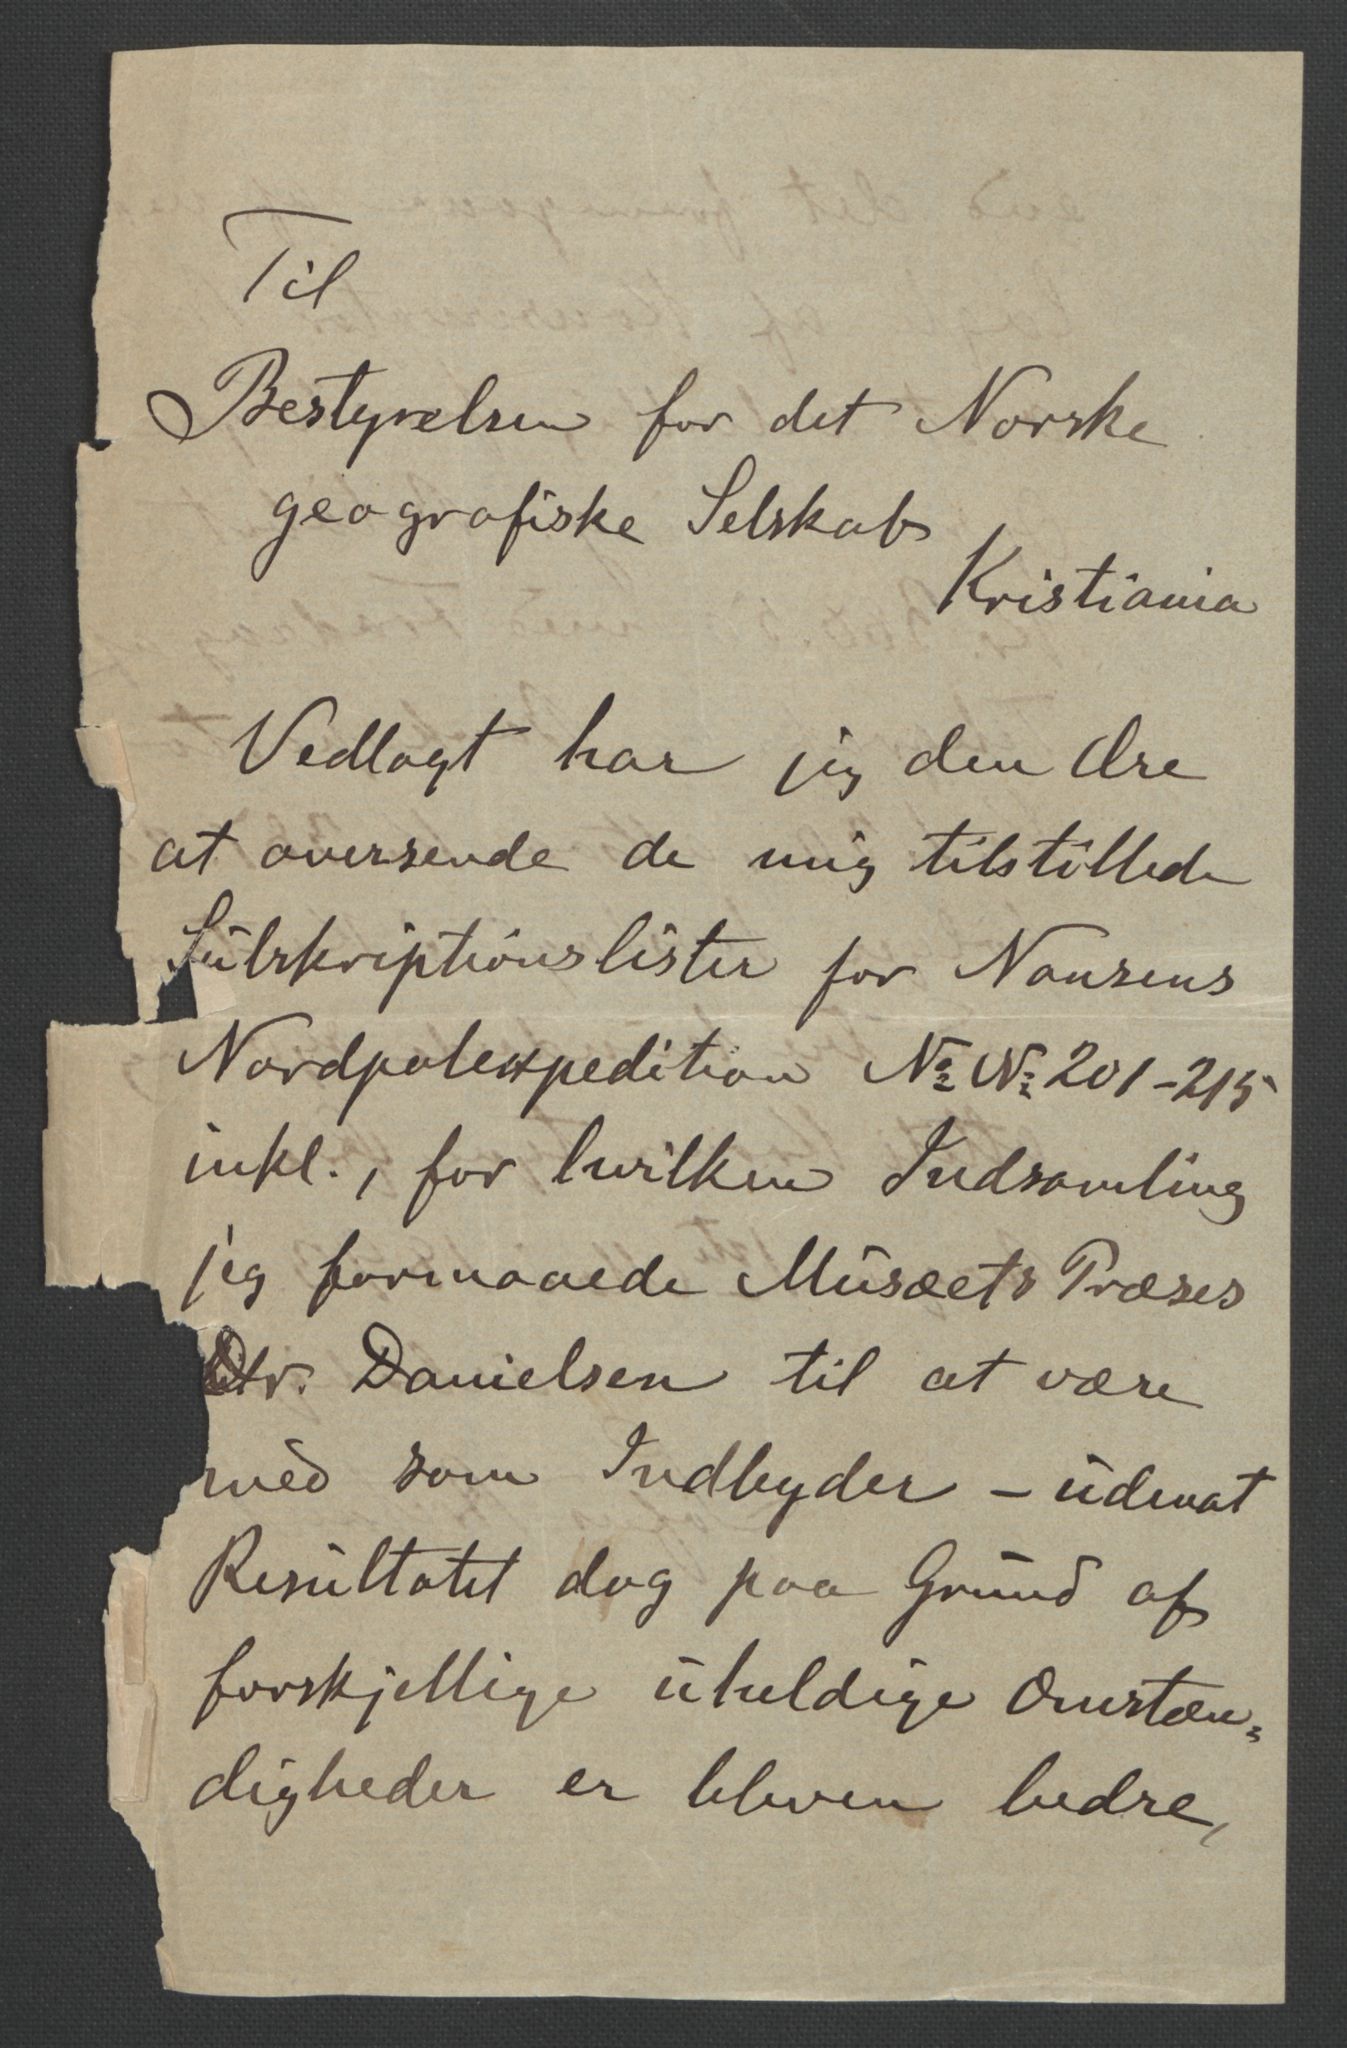 Til
Bestyrelsen for det Norske
geografiske Selskab
Kristiania
Vedlagt har jeg den Ære
at oversende de mig tilstillede
Subskriptionslister for Nansens
Nordpolexpedition No No 201-215
inkl., for hvilken Indsamling
jeg formaaede Musæets Præses
Dr. Danielsen til at være
med som Indbyder – udenat
Resultatet dog paa Grund af
forskjellige uheldige Omstæn-
digheder er bleven bedre,